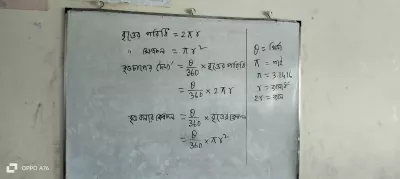 বৃত্তের পরিধি = 2πr
" ক্ষেত্রফল = πr²
বৃত্তচাপের দৈর্ঘ্য = θ/360 × বৃত্তের পরিধি
= θ/360 × 2πr
বৃত্তকলার ক্ষেত্রফল = θ/360 × বৃত্তের ক্ষেত্রফল
= θ/360 × πr²
θ = থিটা
π = পাই
π = 3.1416
r = ব্যাসার্ধ
2r = ব্যাস
OPPO A76